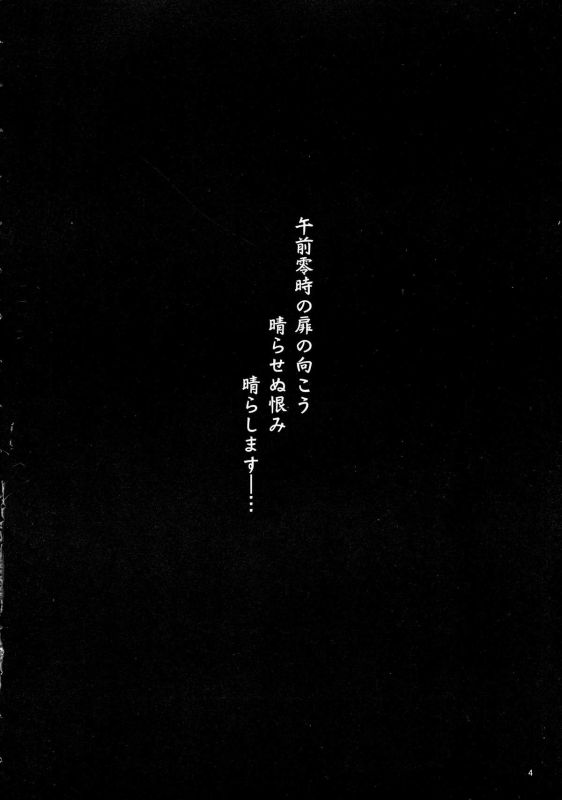 午前零時の扉の向こう
晴らせぬ恨み
晴らします―…
4